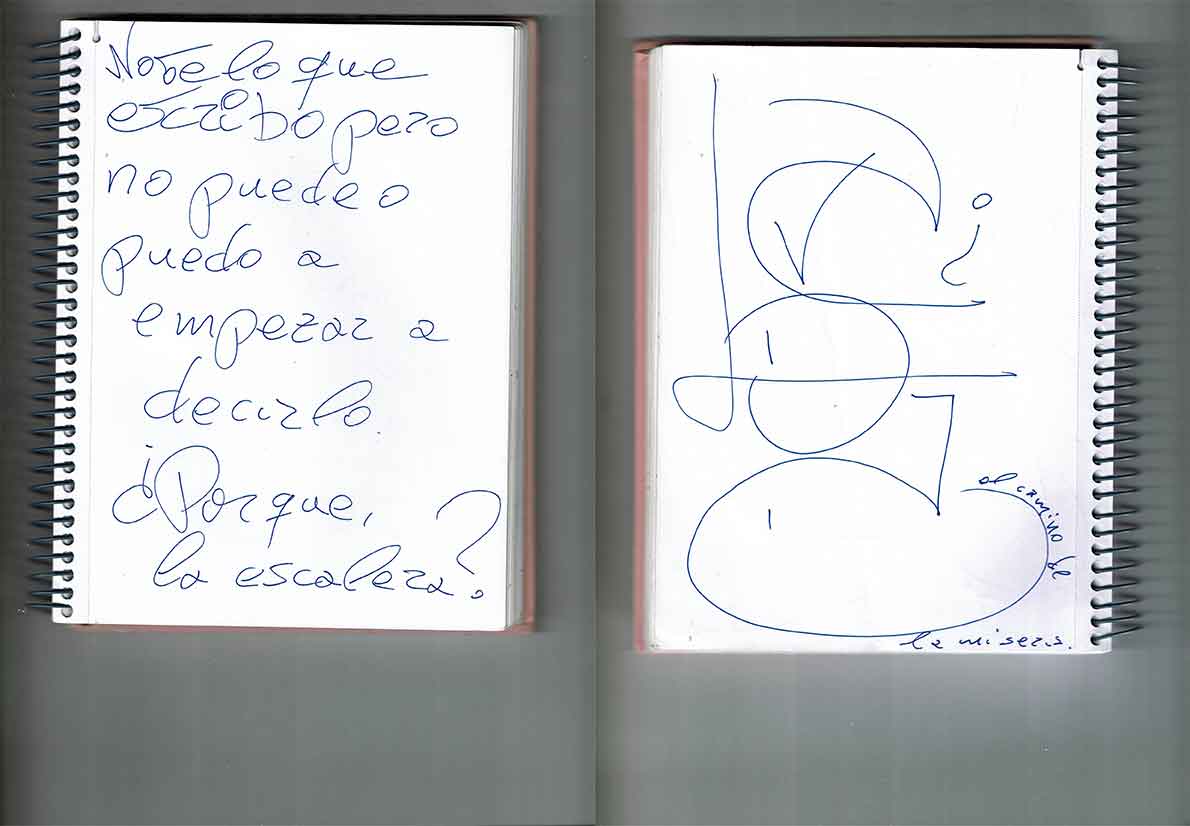 No se lo que
escribo pero
no puede o
puedo a
empezar a
decirlo.
¿Porque,
la escalera?
¿
el camino de
la miseria.